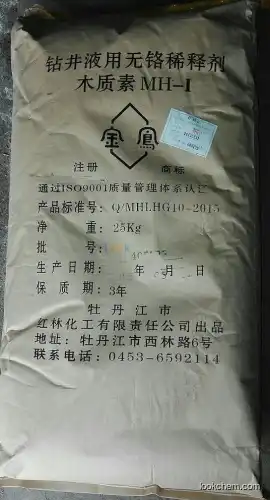 钻井液用无铬稀释剂
木质素MH-I
金鳳
注册 商标
通过ISO9001质量管理体系认证
产品标准号: Q/MHLHG40-2015
净 重: 25Kg
批 号:
生产日期: 年 月 日
保 质 期: 3年
牡 丹 江 市
红林化工有限责任公司出品
地址: 牡丹江市西林路6号
联系电话: 0453-6592114
lookchem.com